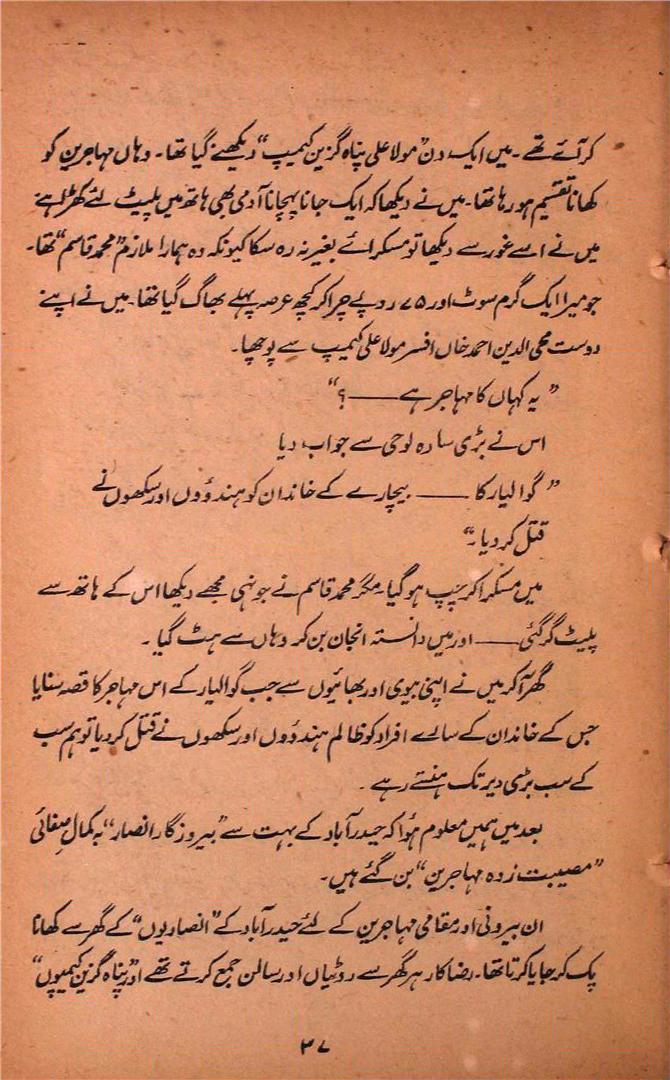 کر آئے تھے ۔ میں ایک دن ”مولا علی پناہ گزین کیمپ“ دیکھنے گیا تھا ۔ وہاں مہاجرین کو
کھانا تقسیم ہو رہا تھا ۔ میں نے دیکھا کہ ایک جانا پہچانا آدمی بھی ہاتھ میں پلیٹ لئے کھڑا ہے
میں نے اسے غور سے دیکھا تو مسکرائے بغیر نہ رہ سکا کیونکہ وہ ہمارا ملازم ”محمد قاسم“ تھا ۔
جو میرا ایک گرم سوٹ اور ۷۵ روپے چرا کر کچھ عرصہ پہلے بھاگ گیا تھا ۔ میں نے اپنے
دوست محی الدین احمد خاں افسر مولا علی کیمپ سے پوچھا ۔
”یہ کہاں کا مہاجر ہے —— ؟“
اس نے بڑی سادہ لوحی سے جواب دیا
”گوالیار کا —— بیچارے کے خاندان کو ہندوؤں اور سکھوں نے
قتل کر دیا ۔“
میں مسکرا کر چپ ہو گیا ۔ مگر محمد قاسم نے جونہی مجھے دیکھا اس کے ہاتھ سے
پلیٹ گر گئی —— اور میں دانستہ انجان بن کر وہاں سے ہٹ گیا ۔
گھر آ کر میں نے اپنی بیوی اور بھائیوں سے جب گوالیار کے اس مہاجر کا قصہ سنایا
جس کے خاندان کے سالے افراد کو ظالم ہندوؤں اور سکھوں نے قتل کر دیا تو ہم سب
کے سب بڑی دیر تک ہنستے رہے ۔
بعد میں ہمیں معلوم ہوا کہ حیدرآباد کے بہت سے ”بیروزگار انصار“ بہ کمال صفائی
”مصیبت زدہ مہاجرین“ بن گئے ہیں ۔
ان بیرونی اور مقامی مہاجرین کے لئے حیدرآباد کے ”انصاریوں“ کے گھر سے کھانا
پک کر جایا کرتا تھا ۔ رضا کار ہر گھر سے روٹیاں اور سالن جمع کرتے تھے اور ”پناہ گزین کیمپوں“
۳۷